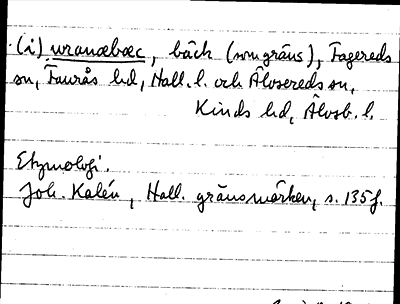 (i) uranæbæc, bäck (som gräns), Fagereds
sn, Faurås hd, Hall. l. och Älvsereds sn,
Kinds hd, Älvsb. l.
Etymologi.
Joh. Kalén, Hall. gränsmärken, s. 135 f.